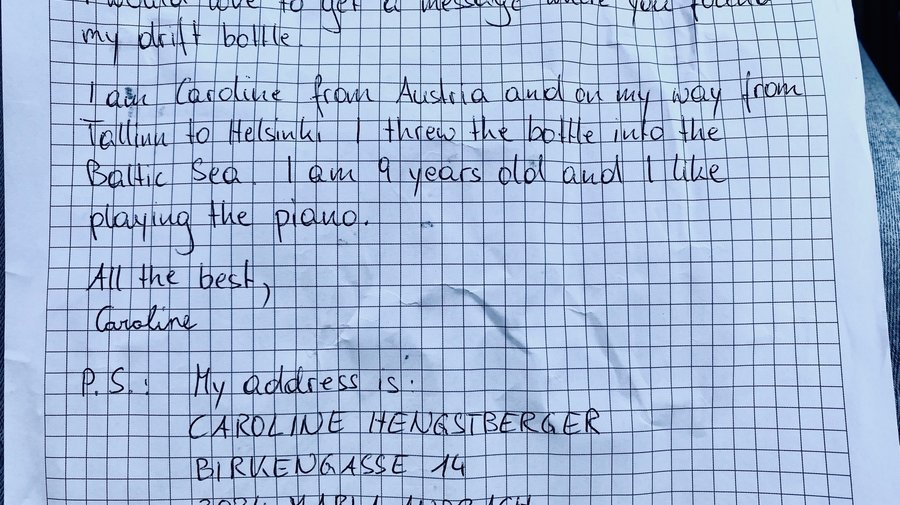 I would love to get a message where you found
my drift bottle.
I am Caroline from Austria and on my way from
Tallinn to Helsinki I threw the bottle into the
Baltic Sea. I am 9 years old and I like
playing the piano.
All the best,
Caroline
P.S.: My address is:
CAROLINE HENGSTBERGER
BIRKENGASSE 14
MARIA